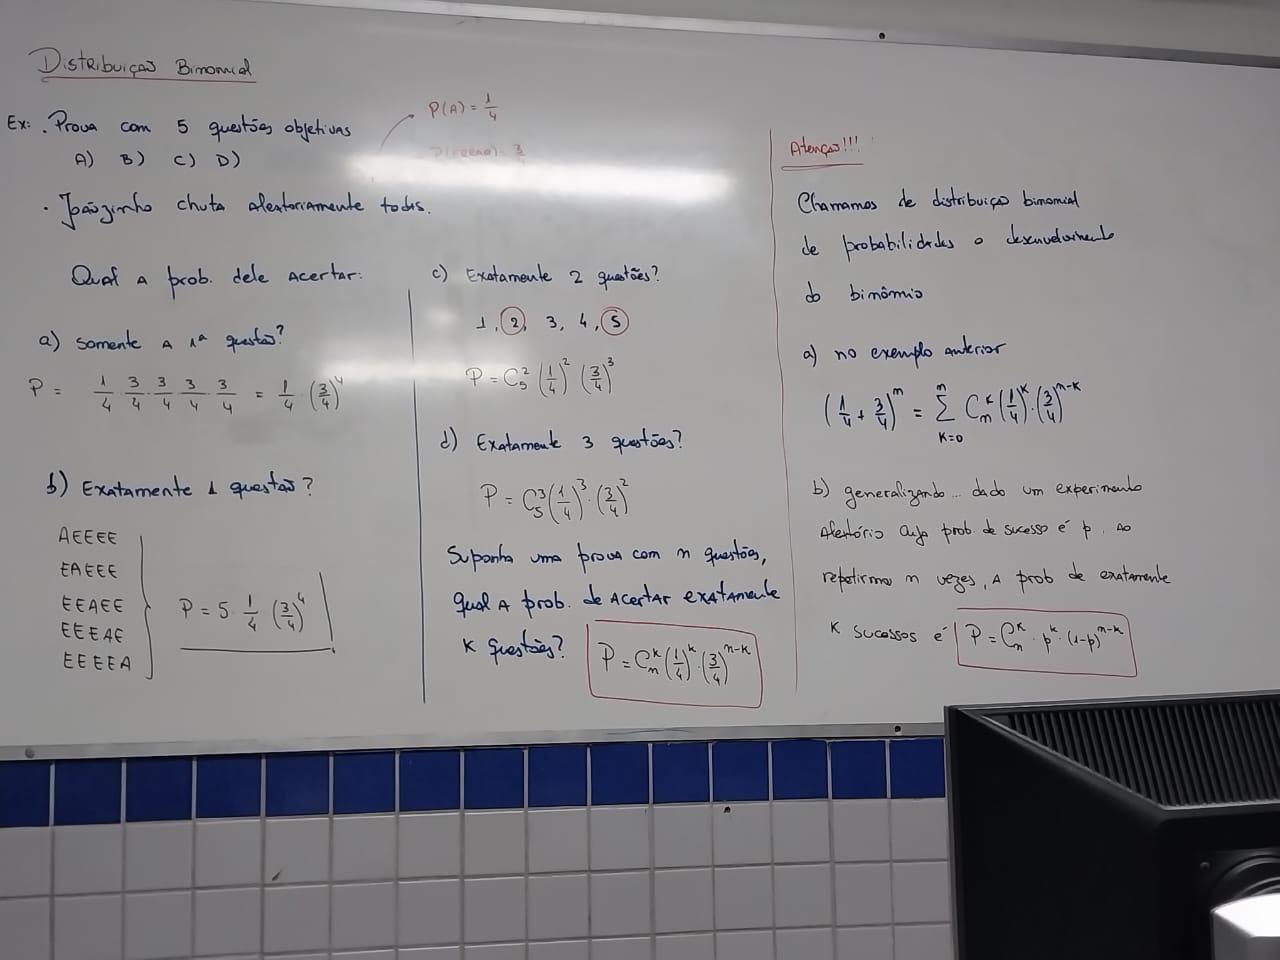 Distribuição Binomial
Ex: . Prova com 5 questões objetivas
A) B) C) D)
P(A) = 1/4
P(ERRAR) = 3/4
. Joãozinho chuta aleatoriamente todas.
Qual a prob. dele acertar:
a) somente a 1ª questão?
P = 1/4 · 3/4 · 3/4 · 3/4 · 3/4 = 1/4 · (3/4)^4
b) Exatamente 1 questão?
AEEEE
EAEEE
EEAEE
EEEAE
EEEEA
P = 5 · 1/4 · (3/4)^4
c) Exatamente 2 questões?
1, 2, 3, 4, 5
P = C_5^2 (1/4)^2 (3/4)^3
d) Exatamente 3 questões?
P = C_5^3 (1/4)^3 · (3/4)^2
Suponha uma prova com n questões,
qual a prob. de acertar exatamente
K questões?
P = C_n^k (1/4)^k · (3/4)^{n-k}
Atenção!!!
Chamamos de distribuição binomial
de probabilidades o desenvolvimento
do binômio
a) no exemplo anterior
(1/4 + 3/4)^n = Σ_{K=0}^{n} C_n^k (1/4)^k · (3/4)^{n-k}
b) generalizando... dado um experimento
aleatório cuja prob. de sucesso é p, ao
repetirmos n vezes, a prob de exatamente
K sucessos é
P = C_n^k · p^k · (1-p)^{n-k}